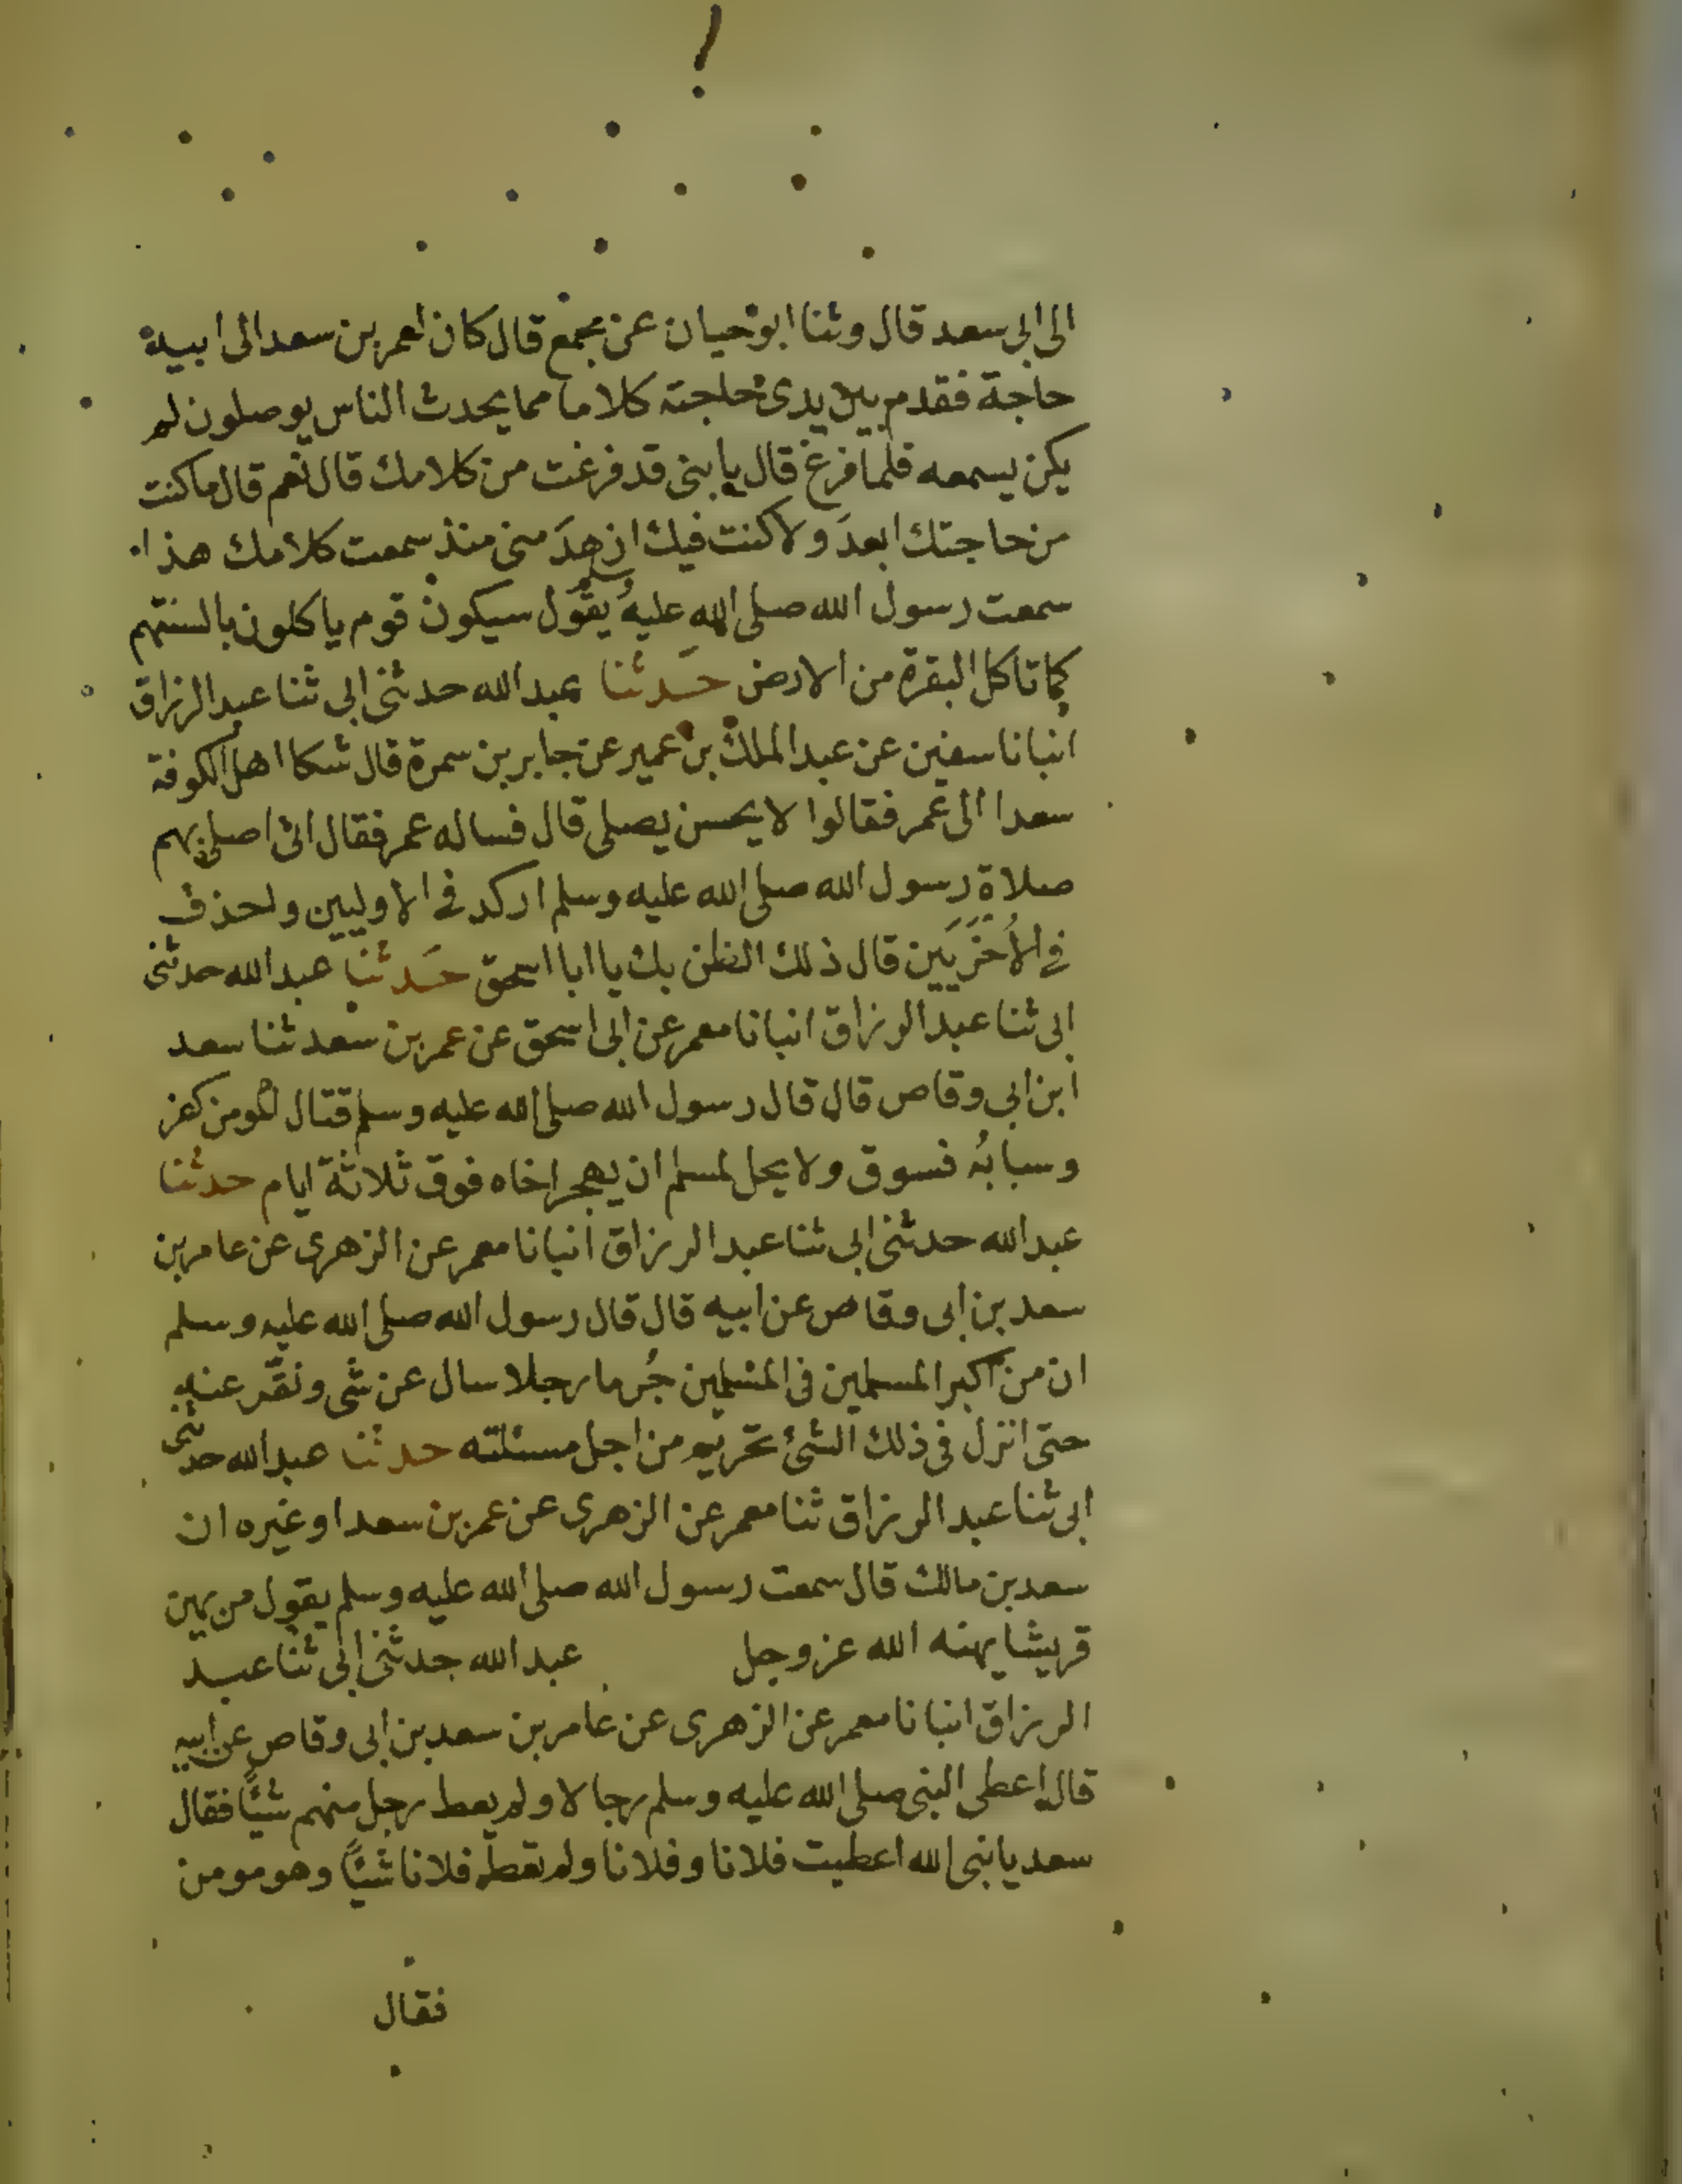 الى ابى سعد قال وثنا ابو حيان عن مجمع قال كان لعمر بن سعد الى ابيه
حاجة فقدم بين يدى حاجته كلاما مما يحدث الناس يوصلون لم
يكن يسمعه فلما فرغ قال يا بنى قد فرغت من كلامك قال نعم قال ما كنت
من حاجتك ابعدَ ولا كنت فيك ازهدَ منى منذ سمعت كلامك هذا
سمعت رسول الله صلى الله عليه وسلم يقول سيكون قوم ياكلون بالسنتهم
كما تاكل البقرة من الارض حَدثنا عبد الله حدثنى ابى ثنا عبد الرزاق
انبانا سفين عن عبد الملك بن عمير عن جابر بن سمرة قال شكا اهل الكوفة
سعدا الى عمر فقالوا لا يحسن يصلى قال فساله عمر فقال انى اصلى بهم
صلاة رسول الله صلى الله عليه وسلم اركد فى الاوليين واحذف
فى الاُخرَيَين قال ذلك الظن بك يا ابا اسحق حَدثنا عبد الله حدثنى
ابى ثنا عبد الرزاق انبانا معمر عن ابى اسحق عن عمر بن سعد ثنا سعد
ابن ابى وقاص قال قال رسول الله صلى الله عليه وسلم قتال المومن كفر
وسبابُه فسوق ولا يحل لمسلم ان يهجر اخاه فوق ثلاثة ايام حدثنا
عبد الله حدثنى ابى ثنا عبد الرزاق انبانا معمر عن الزهرى عن عامر بن
سعد بن ابى وقاص عن ابيه قال قال رسول الله صلى الله عليه وسلم
ان من اكبر المسلمين فى المسلمين جُرما رجلا سال عن شى ونقّر عنه
حتى انزل فى ذلك الشئ تحريم من اجل مسئلته حدثنا عبد الله حدثنى
ابى ثنا عبد الرزاق ثنا معمر عن الزهرى عن عمر بن سعد او غيره ان
سعد بن مالك قال سمعت رسول الله صلى الله عليه وسلم يقول من يهين
قريشا يهنه الله عز وجل عبد الله حدثنى ابى ثنا عبد
الرزاق انبانا معمر عن الزهرى عن عامر بن سعد بن ابى وقاص عن ابيه
قال اعطى النبى صلى الله عليه وسلم رجالا ولم يعط رجل منهم شيئًا فقال
سعد يا نبى الله اعطيت فلانا وفلانا ولم تعط فلانا شيئًا وهو مومن
فقال